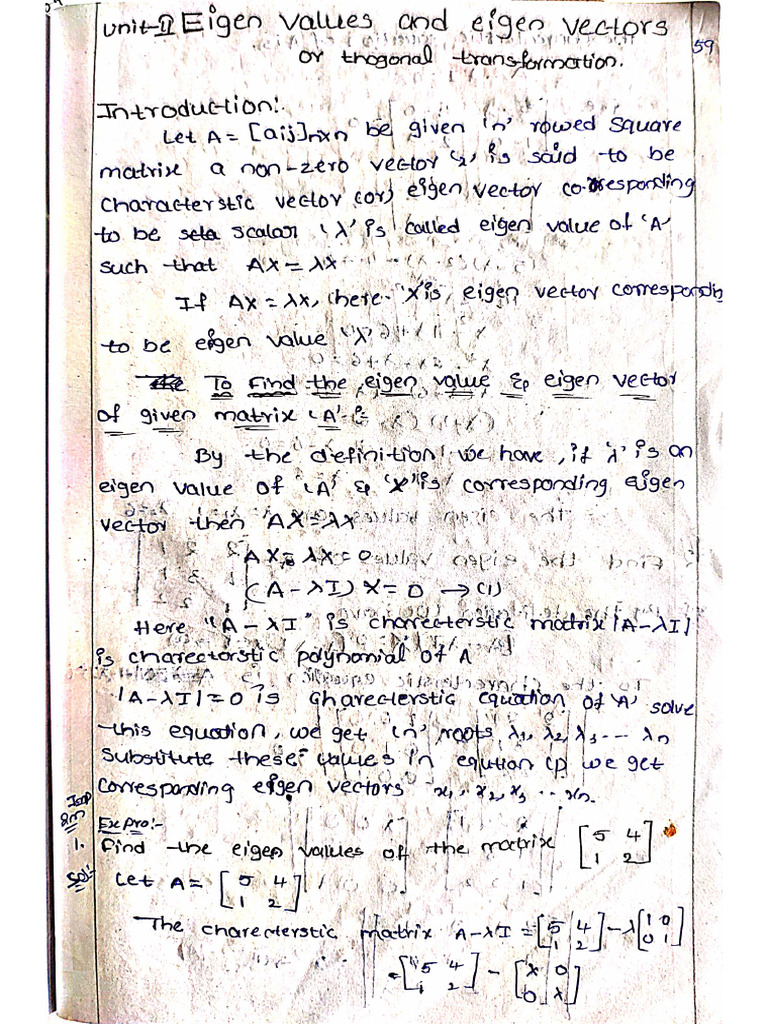 Unit-II Eigen values and eigen vectors
or thogonal transformation.
59
Introduction:-
Let A = [aij]nxn be given 'n' rowed square
matrix a non-zero vector 'x' is said to be
characterstic vector (or) eigen vector corresponding
to be scalar 'λ' is called eigen value of 'A'
such that AX = λX
If AX = λX, here 'X' is eigen vector correspondin
to be eigen value "λ"
To Find the eigen value & eigen vector
of given matrix 'A' :-
By the definition we have, if 'λ' is an
eigen value of 'A' & 'X' is corresponding eigen
vector then AX = λX
AX - λX = 0
(A - λI) X = 0 → (1)
Here "A - λI" is charecterstic matrix |A-λI|
is charectorstic polynomial of A
|A-λI| = 0 is charecterstic equation of 'A' solve
this equation, we get 'n' roots λ1, λ2, λ3 ... λn
substitute these values in eqution (1) we get
corresponding eigen vectors x1, x2, x3 ... xn.
Imp
2m
Ex pro:-
1. Find the eigen values of the matrix [5 4
1 2]
Sol:- Let A = [5 4
1 2]
The charecterstic matrix A-λI = [5 4
1 2] - λ[1 0
0 1]
= [5 4
1 2] - [λ 0
0 λ]